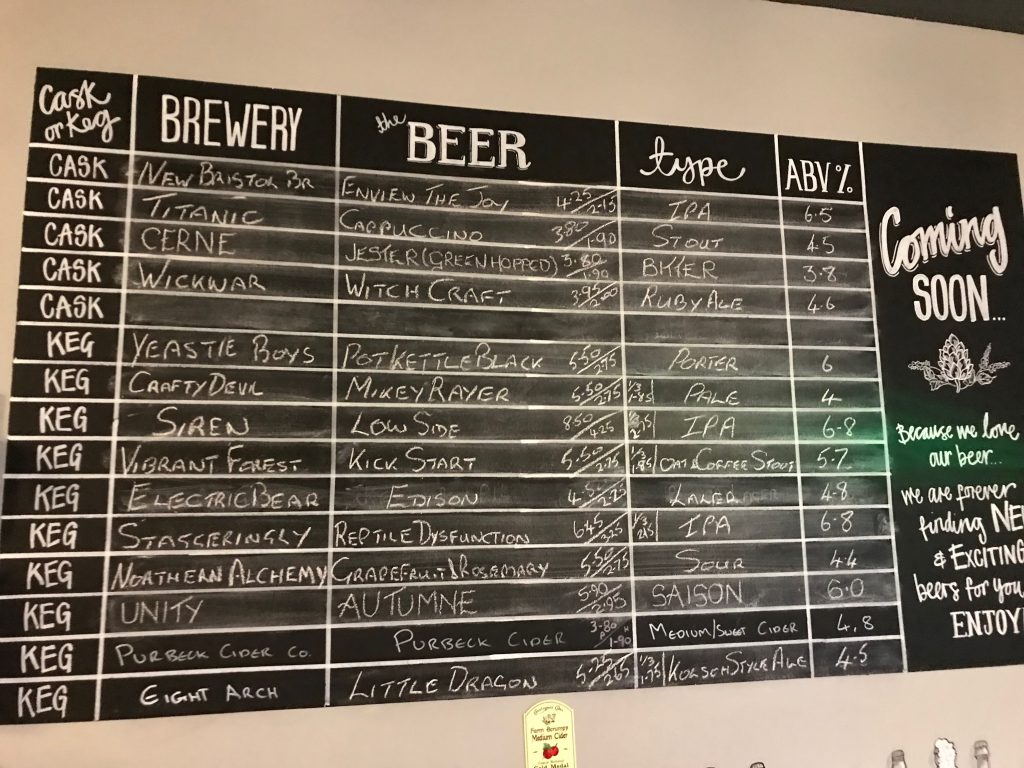 Cask or Keg BREWERY the BEER type ABV %
CASK NEW BRISTOL BR ENVIEW THE JOY 4.25/2.15 IPA 6.5
CASK TITANIC CAPPUCCINO 3.80/1.90 STOUT 4.5
CASK CERNE JESTER (GREEN HOPPED) 3.80/1.90 BITTER 3.8
CASK WICKWAR WITCH CRAFT 3.95/2.00 RUBY ALE 4.6
CASK
KEG YEASTIE BOYS POT KETTLE BLACK 5.50/2.75 PORTER 6
KEG CRAFTY DEVIL MIKEY RAYER 5.50/2.75 1/3 1.85 PALE 4
KEG SIREN LOW SIDE 8.50/4.25 1/3 IPA 6.8
KEG VIBRANT FOREST KICK START 5.50/2.75 1/3 1.85 OAT & COFFEE STOUT 5.7
KEG ELECTRIC BEAR EDISON 4.50/2.25 LAGER 4.8
KEG STAGGERINGLY REPTILE DYSFUNCTION 6.45/3.25 1/3 2.15 IPA 6.8
KEG NORTHERN ALCHEMY GRAPEFRUIT & ROSEMARY 5.50/2.75 SOUR 4.4
KEG UNITY AUTUMNE 5.90/2.95 SAISON 6.0
KEG PURBECK CIDER CO. PURBECK CIDER 3.80 P H 1.90 MEDIUM/SWEET CIDER 4.8
KEG EIGHT ARCH LITTLE DRAGON 5.25/2.65 1/3 1.75 KOLSCH STYLE ALE 4.5
Coming
SOON...
Because we love
our beer...
we are forever
finding NE
& EXCITING
beers for you
ENJOY!
Farm Scrumpy
Medium Cider
Gold Medal